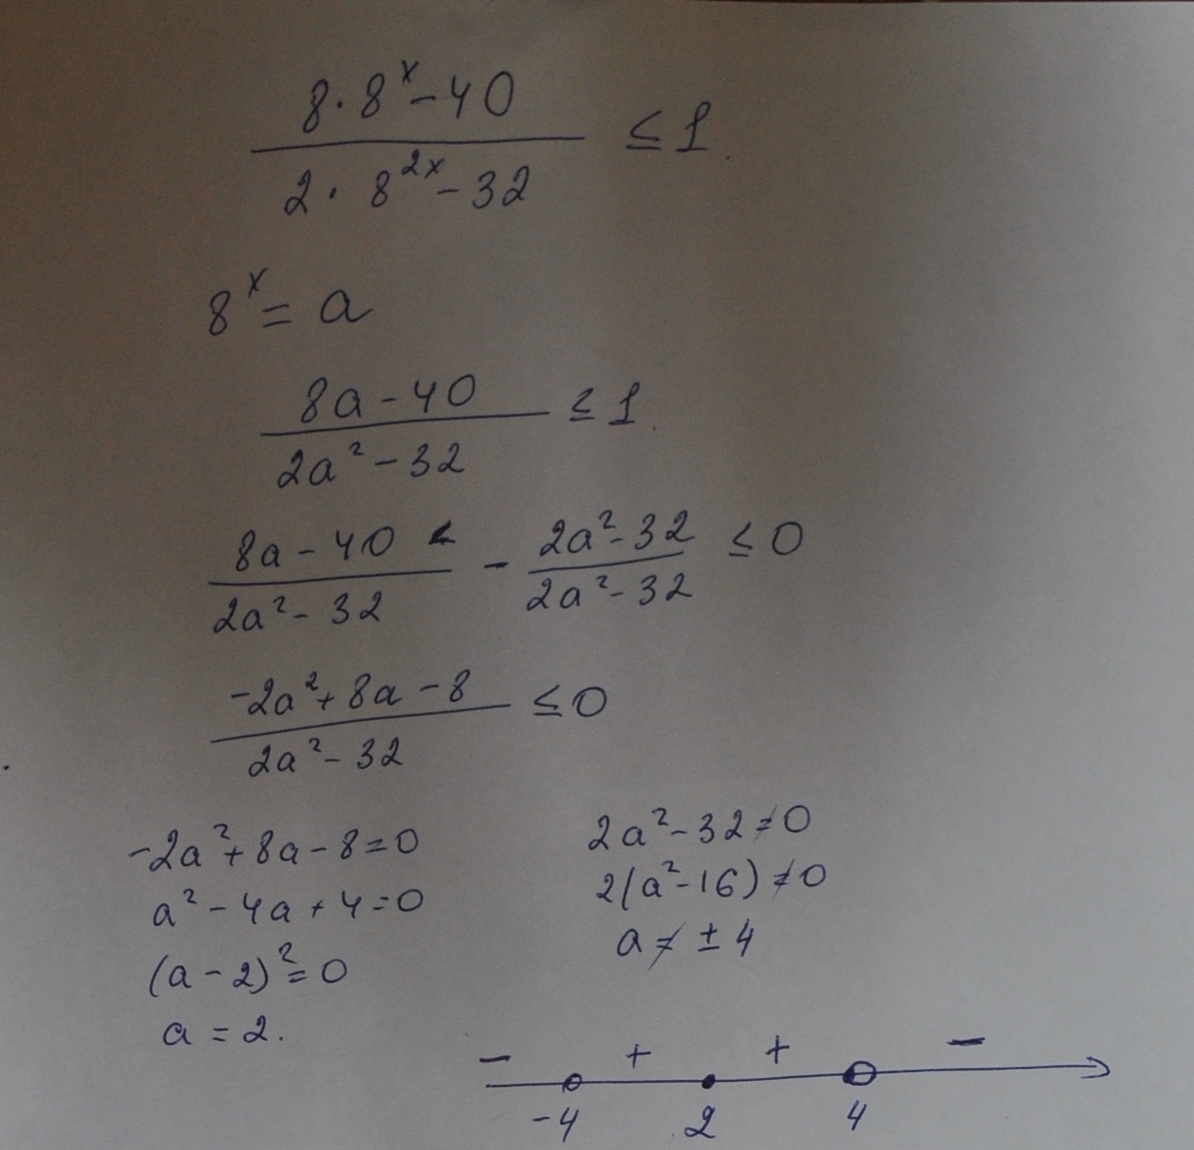 (8 · 8^x − 40) / (2 · 8^(2x) − 32) ≤ 1.
8^x = a
(8a − 40) / (2a² − 32) ≤ 1.
(8a − 40) / (2a² − 32) − (2a² − 32) / (2a² − 32) ≤ 0
(−2a² + 8a − 8) / (2a² − 32) ≤ 0
−2a² + 8a − 8 = 0
a² − 4a + 4 = 0
(a − 2)² = 0
a = 2.
2a² − 32 ≠ 0
2(a² − 16) ≠ 0
a ≠ ± 4
− + + −
−4 2 4